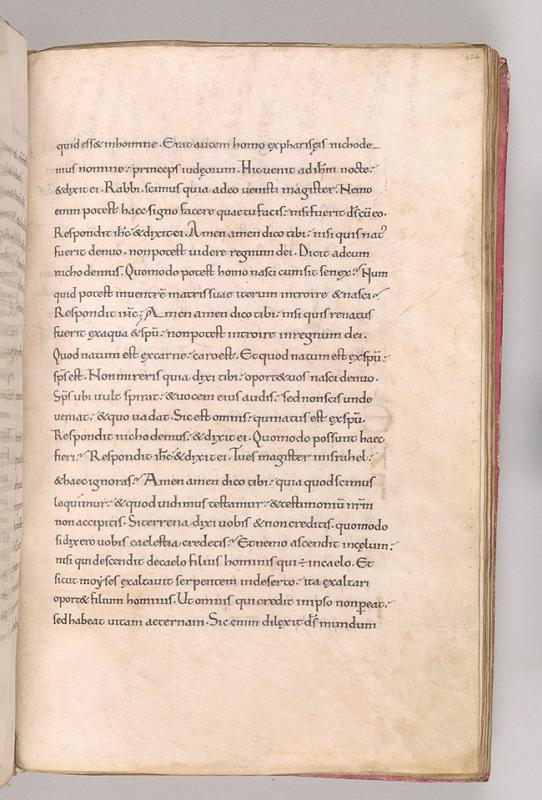 126
quid ess& inhomine. Erat autem homo expharisęis nichode
mus nomine. princeps iudęorum. Hic venit ad ihm nocte.
& dixit ei. Rabbi. scimus quia adeo venisti magister. Nemo
enim potest haec signo facere quae tu facis. nisi fuerit ds cū eo.
Respondit ihc & dixit ei. Amen amen dico tibi. nisi quis nat᾽
fuerit denuo. non potest uidere regnum dei. Dicit adeum
nichodemus. Quomodo potest homo nasci cum sit senex? Num
quid potest inuentrē matris suae iterum introire & nasci?
Respondit ihc; Amen amen dico tibi. nisi quis renatus
fuerit exaqua & spū. non potest introire inregnum dei.
Quod natum est excarne. caro est. Et quod natum est exspū.
sps est. Non mireris quia dixi tibi. oport& uos nasci denuo.
Sps ubi uult spirat. & uocem eius audis. sed nonscis unde
ueniat. & quo uadat. Sic est omnis. qui natus est exspū.
Respondit nichodemus. & dixit ei. Quomodo possunt haec
fieri? Respondit ihc & dixit ei. Tu es magister insrahel.
& haec ignoras? Amen amen dico tibi. quia quod scimus
loquimur. & quod uidimus testamur. & testimoniū nrm
non accipitis. Si terrena dixi uobis & non creditis. quomodo
si dixero uobis caelestia credetis? Et nemo ascendit incęlum.
nisi qui descendit decaelo filius hominis qui ÷ incaelo. Et
sicut moyses exaltauit serpentem indeserto. ita exaltari
oport& filium hominis. Ut omnis qui credit inipso non peat.
sed habeat uitam aeternam. Sic enim dilexit ds mundum